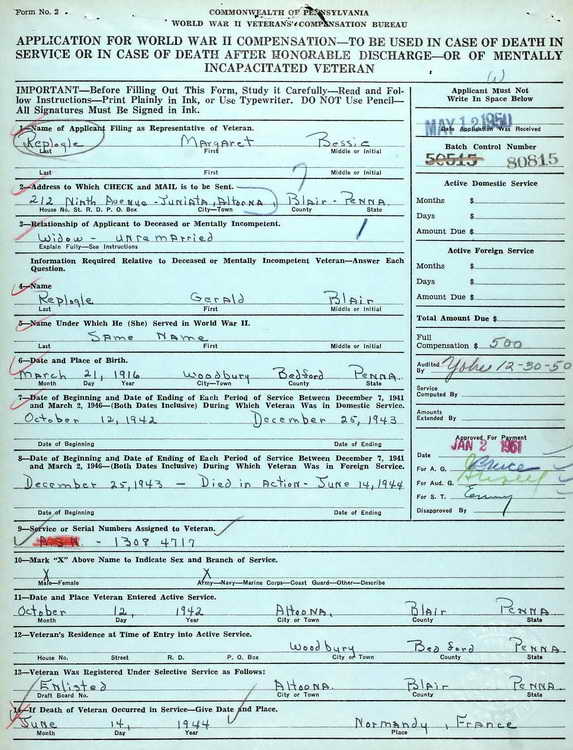 Form No. 2
COMMONWEALTH OF PENNSYLVANIA
WORLD WAR II VETERANS' COMPENSATION BUREAU
APPLICATION FOR WORLD WAR II COMPENSATION—TO BE USED IN CASE OF DEATH IN
SERVICE OR IN CASE OF DEATH AFTER HONORABLE DISCHARGE—OR OF MENTALLY
INCAPACITATED VETERAN
IMPORTANT—Before Filling Out This Form, Study it Carefully—Read and Fol-
low Instructions—Print Plainly in Ink, or Use Typewriter. DO NOT Use Pencil—
All Signatures Must Be Signed in Ink.
1—Name of Applicant Filing as Representative of Veteran.
Replogle Margaret Bessie
Last First Middle or Initial
Last First Middle or Initial
2—Address to Which CHECK and MAIL is to be Sent.
212 Ninth Avenue - Juniata, Altoona, Blair - Penna.
House No. St. R. D. P. O. Box City—Town County State
3—Relationship of Applicant to Deceased or Mentally Incompetent.
Widow - unremarried
Explain Fully—See Instructions
Information Required Relative to Deceased or Mentally Incompetent Veteran—Answer Each
Question.
4—Name
Replogle Gerald Blair
Last First Middle or Initial
5—Name Under Which He (She) Served in World War II.
Same Name
Last First Middle or Initial
6—Date and Place of Birth.
March 21, 1916 Woodbury Bedford Penna.
Month Day Year City—Town County State
7—Date of Beginning and Date of Ending of Each Period of Service Between December 7, 1941
and March 2, 1946—(Both Dates Inclusive) During Which Veteran Was in Domestic Service.
October 12, 1942 December 25, 1943
Date of Beginning Date of Ending
8—Date of Beginning and Date of Ending of Each Period of Service Between December 7, 1941
and March 2, 1946—(Both Dates Inclusive) During Which Veteran Was in Foreign Service.
December 25, 1943 — Died in Action - June 14, 1944
Date of Beginning Date of Ending
Applicant Must Not
Write In Space Below
MAY 12 1950
Date Application Was Received
Batch Control Number
50515 80815
Active Domestic Service
Months $
Days $
Amount Due $
Active Foreign Service
Months $
Days $
Amount Due $
Total Amount Due $
Full
Compensation $ 500
Audited
By Yohe 12-30-50
Service
Computed By
Amounts
Extended By
Approved For Payment
Date JAN 2 1951
For A. G. Bruce
For Aud. G.
For S. T.
Disapproved By
9—Service or Serial Numbers Assigned to Veteran.
ASN - 1308 4717
10—Mark "X" Above Name to Indicate Sex and Branch of Service.
X X
Male—Female Army—Navy—Marine Corps—Coast Guard—Other—Describe
11—Date and Place Veteran Entered Active Service.
October 12, 1942 Altoona, Blair Penna.
Month Day Year City or Town County State
12—Veteran's Residence at Time of Entry into Active Service.
Woodbury Bedford Penna.
House No. Street R. D. P. O. Box City or Town County State
13—Veteran Was Registered Under Selective Service as Follows:
Enlisted Altoona. Blair Penna.
Draft Board No. City or Town County State
14—If Death of Veteran Occurred in Service—Give Date and Place.
June 14, 1944 Normandy, France
Month Day Year Place